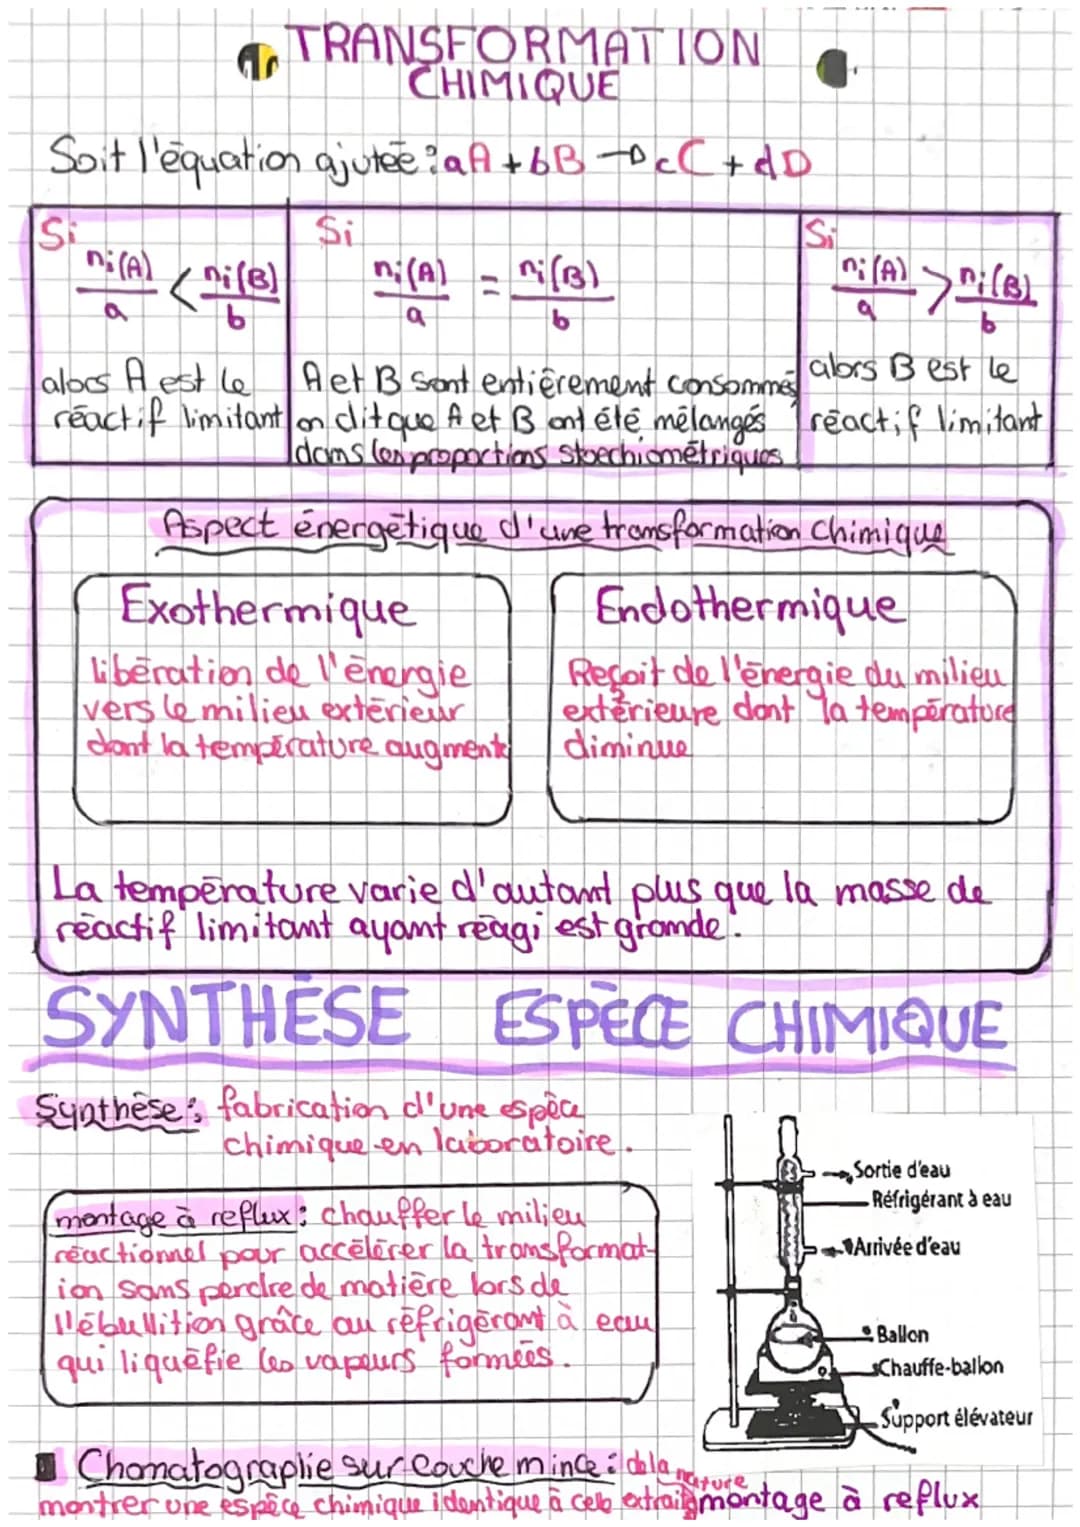 TRANSFORMATION
CHIMIQUE
Soit l'équation ajutée : aA + bB → cC + dD
Si
ni(A)/a < ni(B)/b
alors A est le
réactif limitant
Si
ni(A)/a = ni(B)/b
A et B sont entièrement consommés
on dit que A et B ont été mélangés
dans les proportions stoechiométriques
Si
ni(A)/a > ni(B)/b
alors B est le
réactif limitant
Aspect énergétique d'une transformation chimique
Exothermique
libération de l'énergie
vers le milieu extérieur
dont la température augmente
Endothermique
Reçoit de l'énergie du milieu
extérieure dont la température
diminue
La température varie d'autant plus que la masse de
réactif limitant ayant réagi est grande.
SYNTHÈSE ESPÈCE CHIMIQUE
Synthèse : fabrication d'une espèce
chimique en laboratoire.
montage à reflux : chauffer le milieu
réactionnel pour accélérer la transformat-
ion sans perdre de matière lors de
l'ébullition grâce au réfrigérant à eau
qui liquéfie les vapeurs formées.
Sortie d'eau
Réfrigérant à eau
Arrivée d'eau
Ballon
Chauffe-ballon
Support élévateur
Chomatographie sur couche mince : de la nature
montrer une espèce chimique identique à celle extrait
montage à reflux